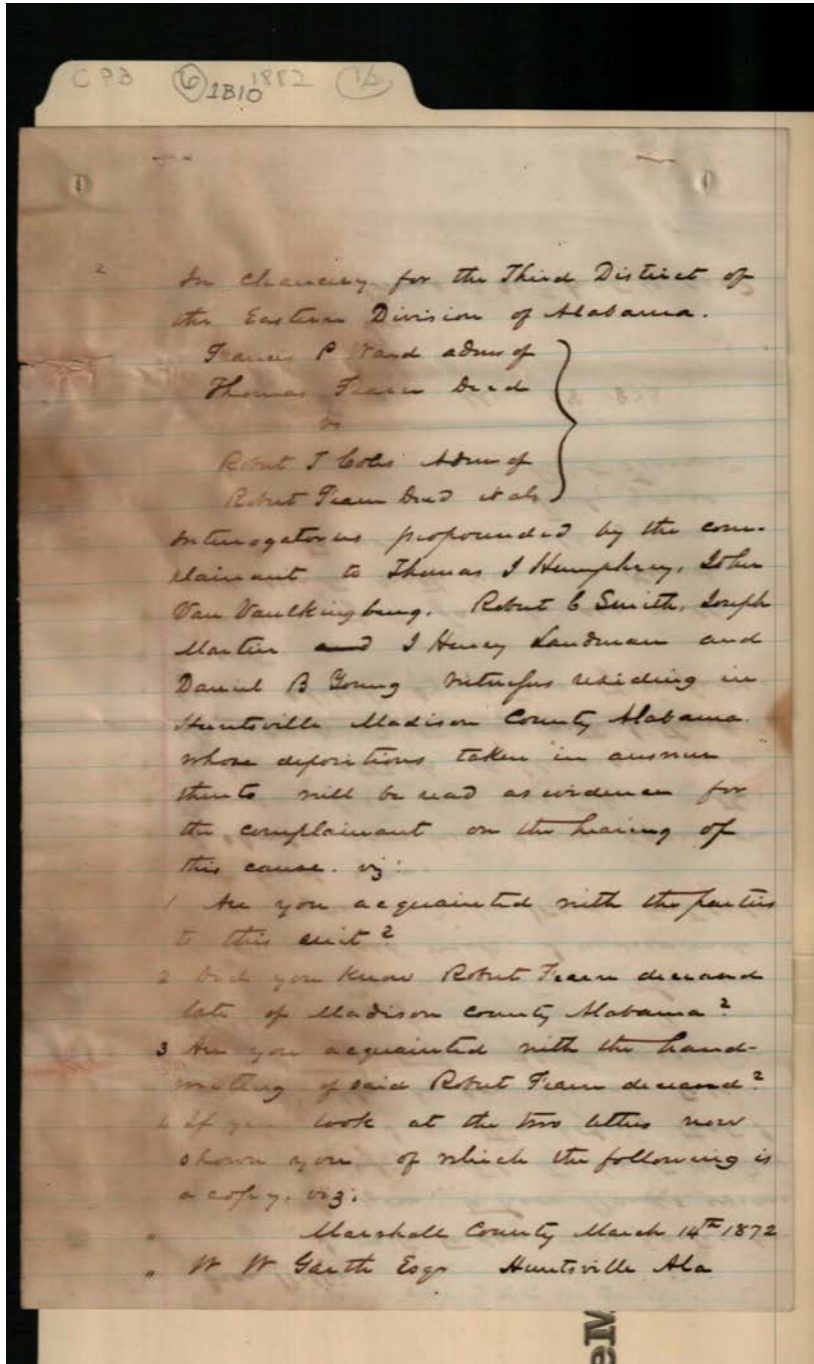 CPB 6 1B10 1882 1/2
2
In Chancery for the Third District of
the Eastern Division of Alabama.
Francis P Ward admr of
Thomas Fearn Decd
vs
Robert J Coles Admr of
Robert Fearn Decd et als
Interrogatories propounded by the com-
plainant to Thomas J Humphrey, John
Van Vaulkingburg. Robert C Smith, Joseph
Martin and J Henry Landman and
Daniel B Young witnesses residing in
Huntsville Madison County Alabama.
whose depositions taken in answer
thereto will be read as evidence for
the complainant on the hearing of
this cause. viz:
1 Are you acquainted with the parties
to this suit?
2 Did you know Robert Fearn deceased
late of Madison County Alabama?
3 Are you acquainted with the hand-
writing of said Robert Fearn deceased?
4 If you look at the two letters now
shown you of which the following is
a copy. viz:
" Marshall County March 14th 1872
" W W Garth Esqr Huntsville Ala
eM